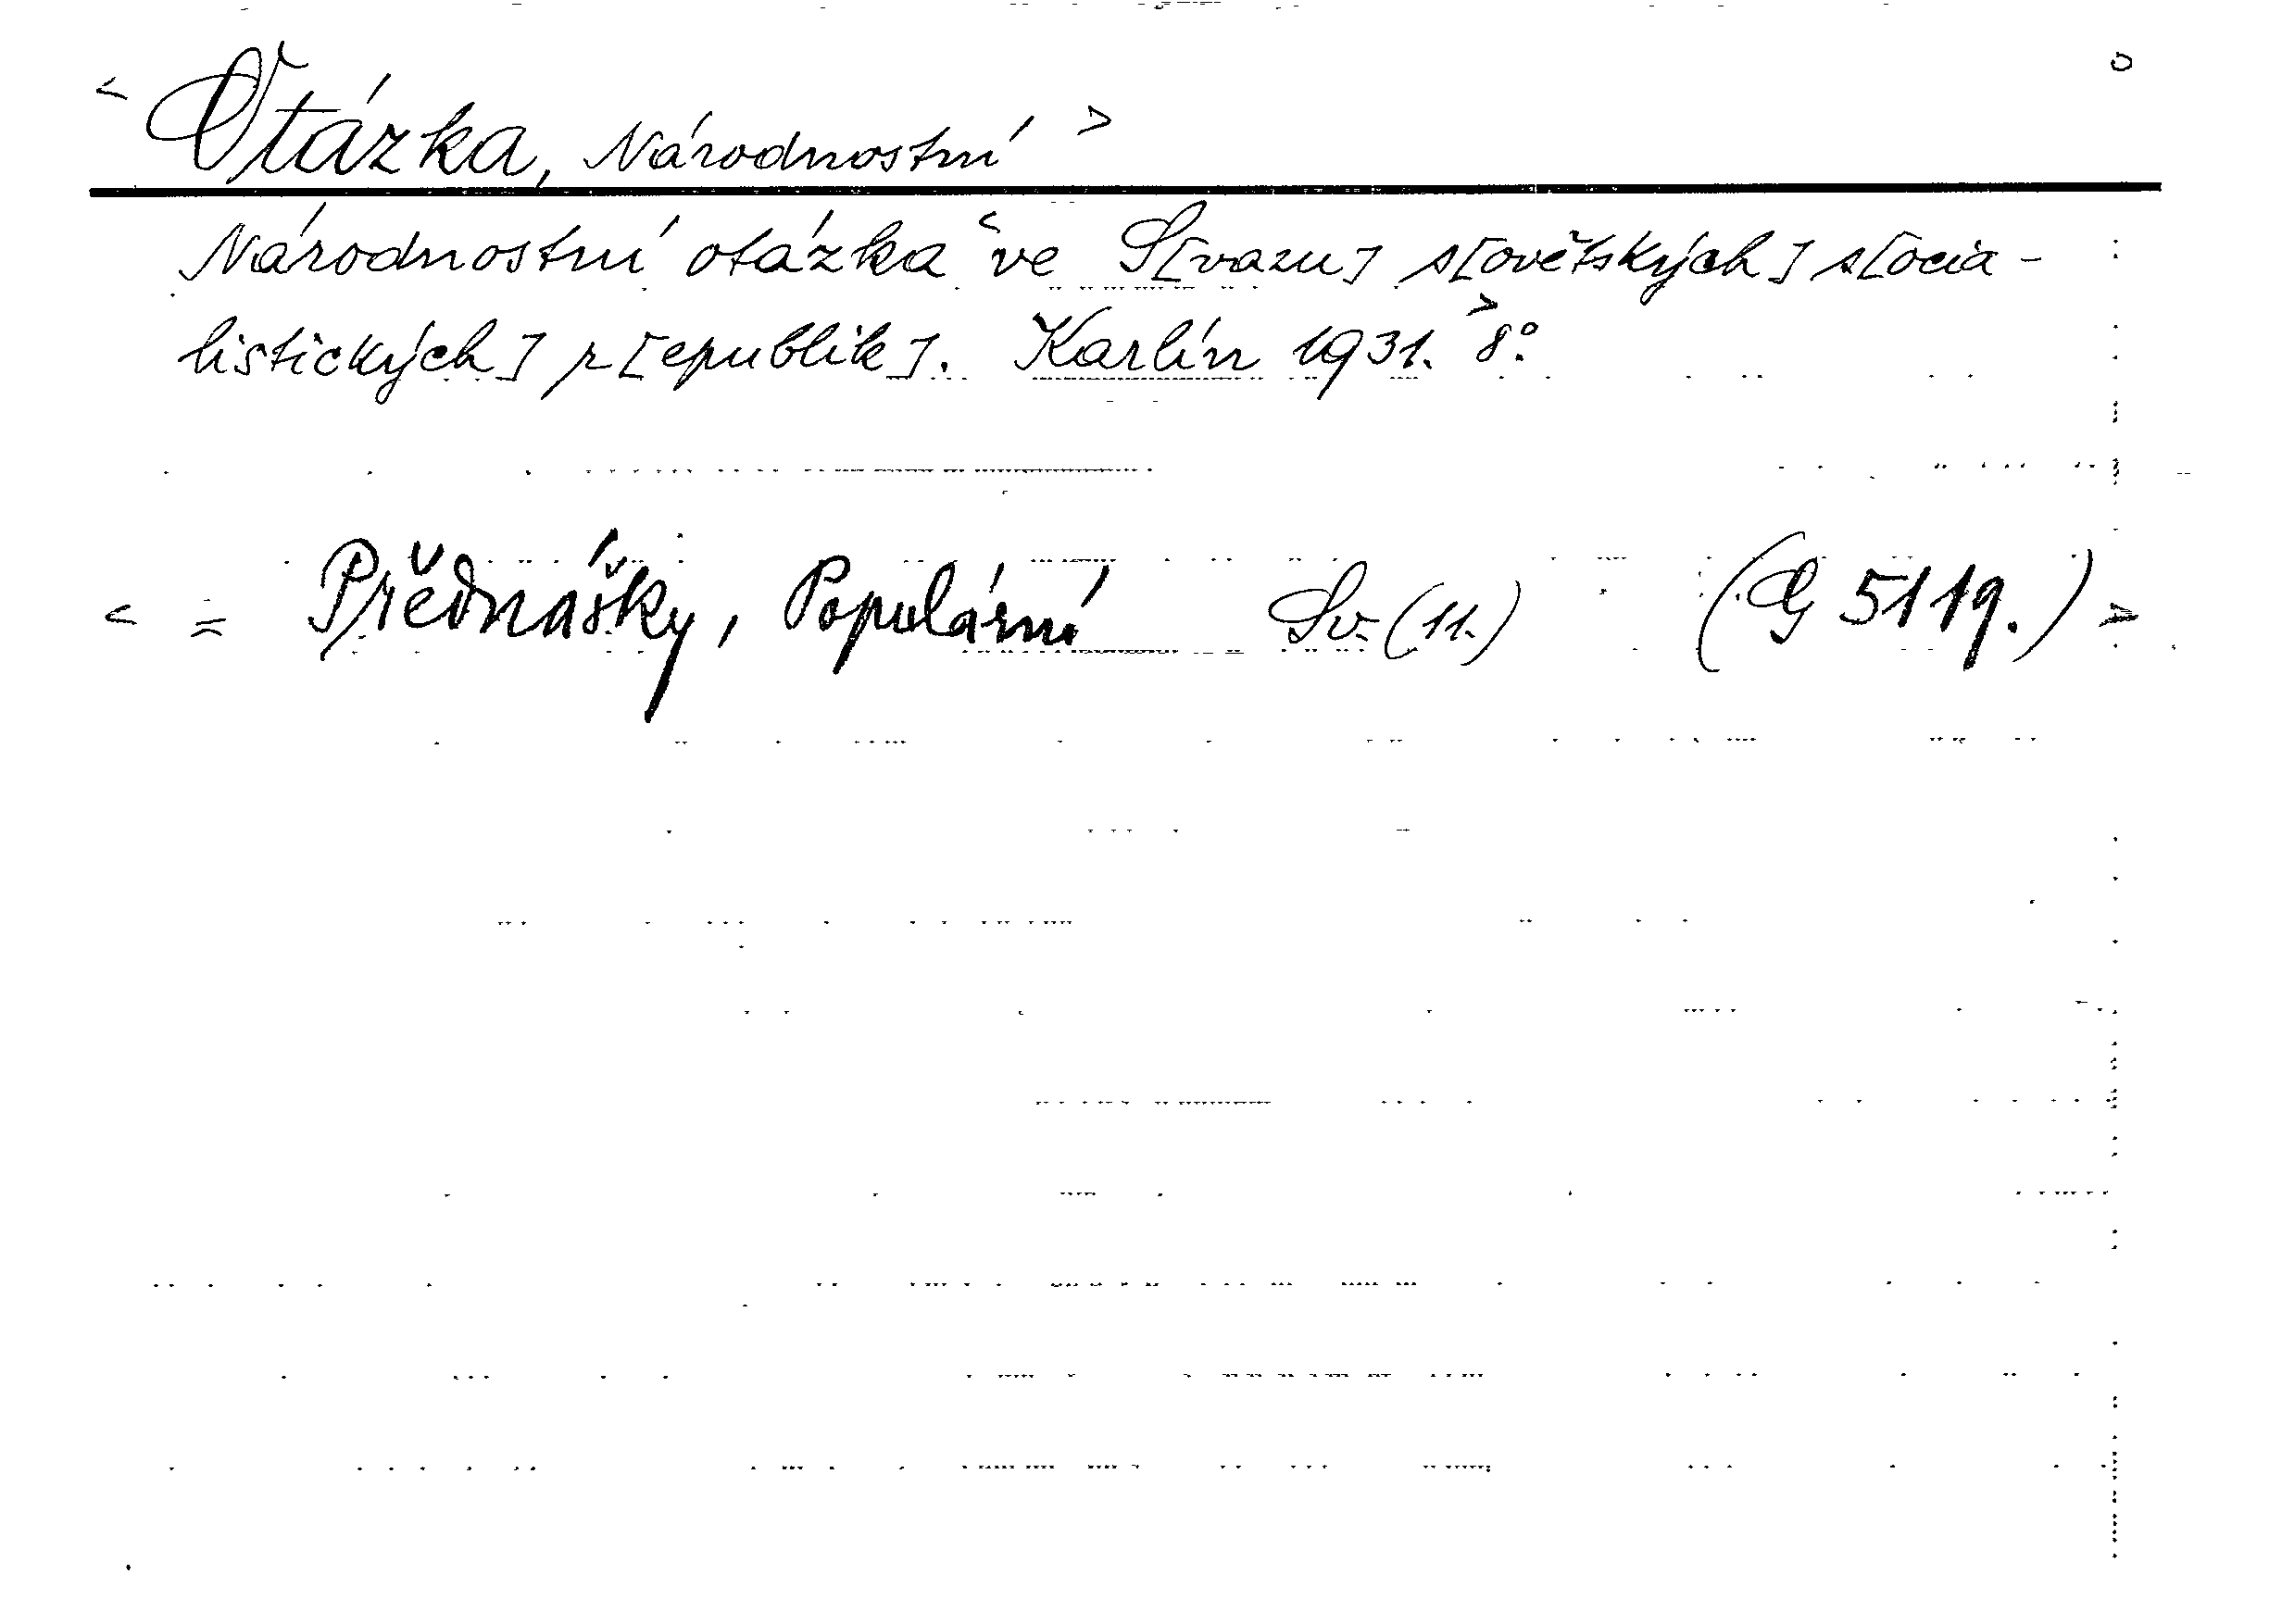 < Otázka, Národnostní >
Národnostní otázka < ve S[vazu] s[ovětských] s[ocia-
listických] r[epublik]. Karlín 1931. > 8°.
< = Přednášky, Populární Sv. (11.) (G 5119.) >